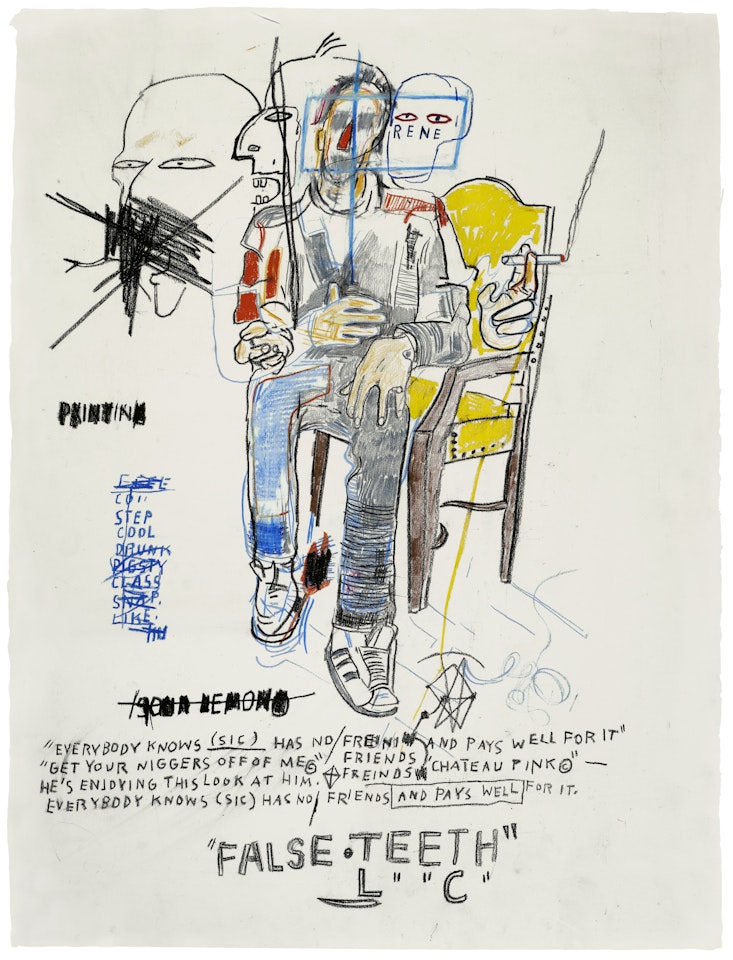 RENE
PAINTING
STEP
COOL
DRUNK
CLASS
SNAP.
LIKE.
SOUR LEMONS
"EVERYBODY KNOWS (SIC) HAS NO / AND PAYS WELL FOR IT"
"GET YOUR NIGGERS OFF OF ME© FRIENDS "CHATEAU PINK©" —
HE'S ENJOYING THIS LOOK AT HIM. FREINDS
EVERYBODY KNOWS (SIC) HAS NO / FRIENDS AND PAYS WELL FOR IT.
"FALSE•TEETH"
L" "C"